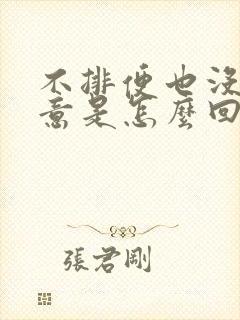 不排便也沒
意是怎麼回
張君剛